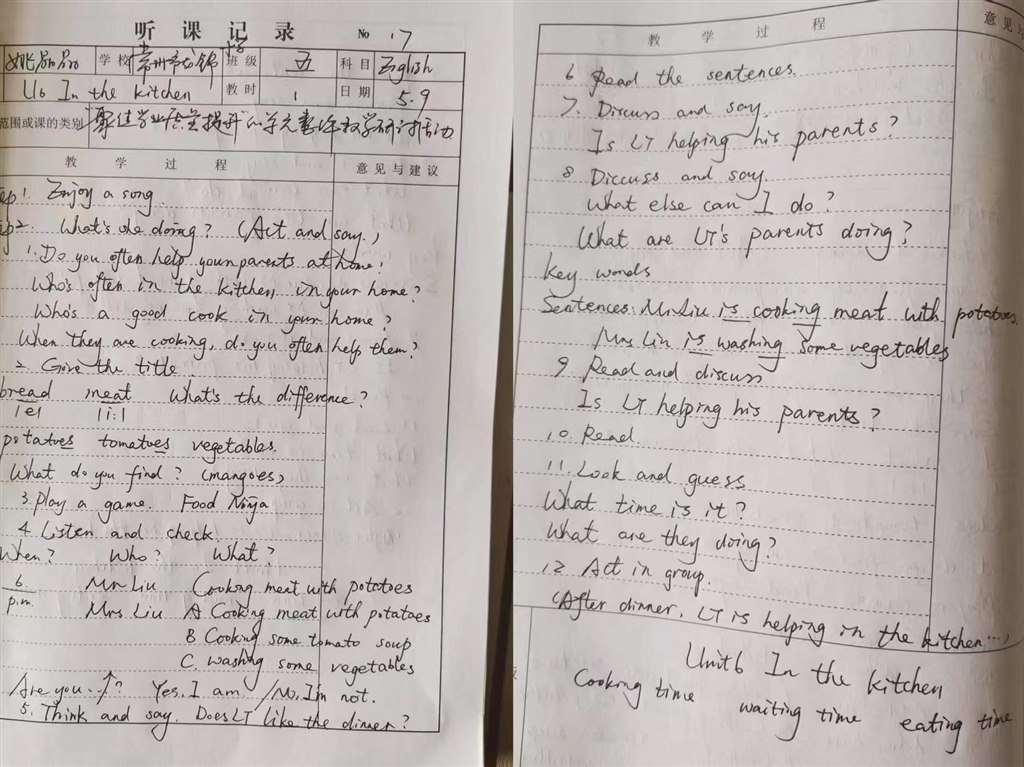 听课记录 No 17
姚晶晶 学校 常州市龙锦 班级 五 科目 English
U6 In the kitchen 教时 1 日期 5.9
范围或课的类别 "聚焦学业质量提升"小学单元整体教学研讨活动
教 学 过 程 意见与建议
ep 1. Enjoy a song.
ep2: What's she doing? (Act and say.)
1. Do you often help your parents at home?
Who's often in the kitchen in your home?
Who's a good cook in your home?
When they are cooking, do you often help them?
2. Give the title
bread meat What's the difference?
/e/ /i:/
potatoes tomatoes vegetables.
What do you find? (mangoes)
3. Play a game. Food Ninja
4. Listen and check
When? Who? What?
6 p.m. Mr Liu Cooking meat with potatoes
Mrs Liu A Cooking meat with potatoes
B Cooking some tomato soup
C washing some vegetables
Are you...↗? Yes, I am /No, I'm not.
5. Think and say. Does LT like the dinner?
教 学 过 程 意见与
6 Read the sentences.
7. Discuss and say.
Is LT helping his parents?
8 Discuss and say.
What else can I do?
What are LT's parents doing?
key words
Sentences: Mr Liu is cooking meat with potatoes.
Mrs Liu is washing some vegetables
9 Read and discuss
Is LT helping his parents?
10. Read.
11. Look and guess
What time is it?
What are they doing?
12 Act in group.
(After dinner, LT is helping in the kitchen...)
Unit6 In the kitchen
Cooking time waiting time eating time